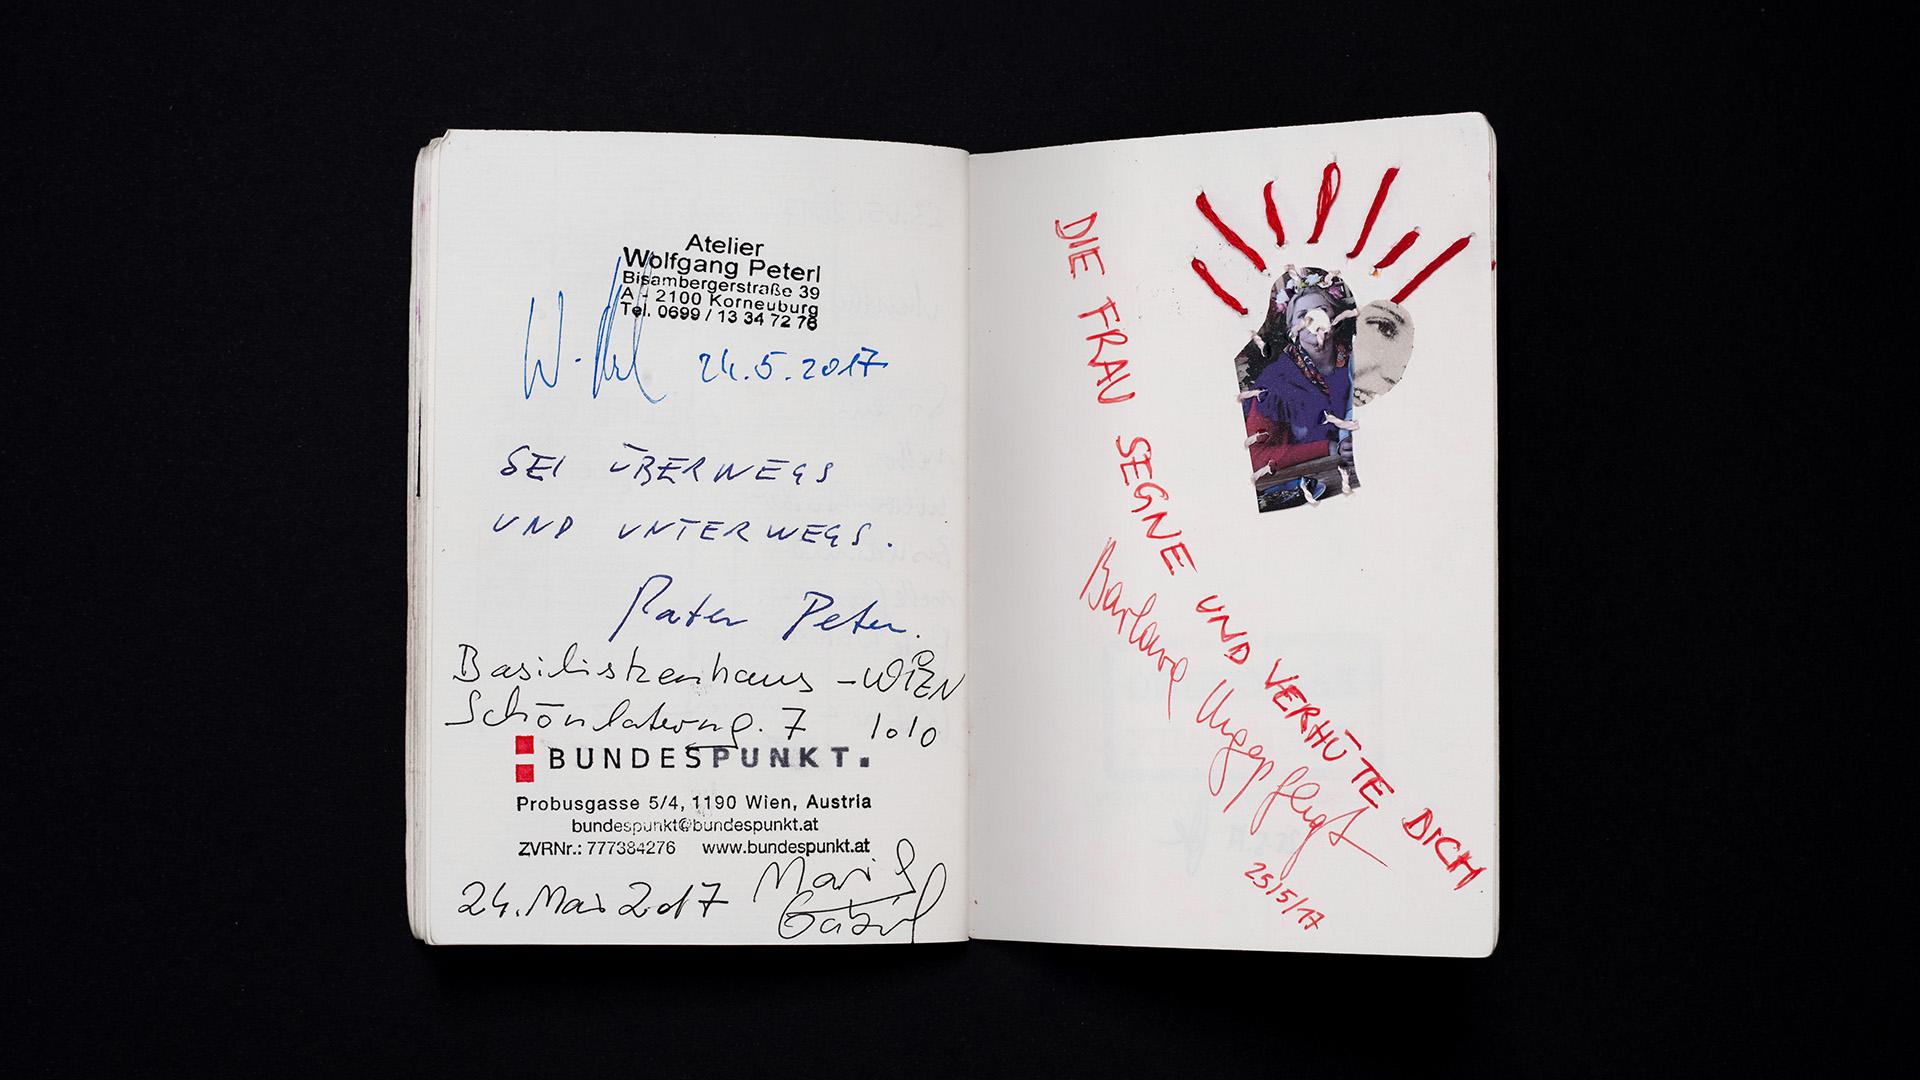 Atelier
Wolfgang Peterl
Bisambergerstraße 39
A - 2100 Korneuburg
Tel. 0699 / 13 34 72 76
24.5.2017
SEI ÜBERWEGS
UND UNTERWEGS.
Pater Peter.
Basiliskenhaus - WIEN
Schönlaterng. 7 1010
BUNDESPUNKT.
Probusgasse 5/4, 1190 Wien, Austria
bundespunkt@bundespunkt.at
ZVRNr.: 777384276 www.bundespunkt.at
24. Mai 2017
DIE FRAU SEGNE UND VERHÜTE DICH
Barbara Ungepflegt
25/5/17